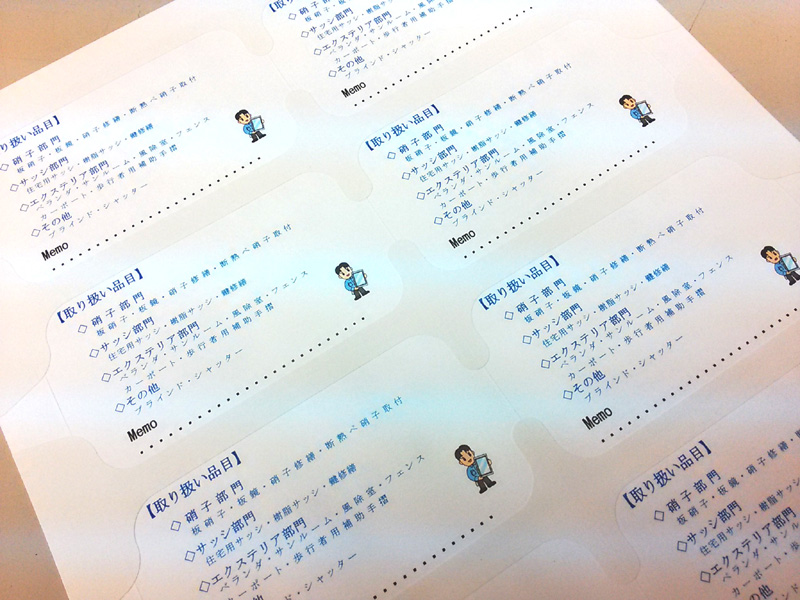 【取
◇サッシ部門
住宅用サッシ・樹脂サッシ・修繕
◇エクステリア部門
ベランダ・サンルーム・風除室・フェンス
カーポート・歩行者用補助手摺
◇その他
ブラインド・シャッター
Memo
り扱い品目】
◇ 硝子部門
板硝子・板鏡・硝子修繕・断熱ペ硝子取付
◇サッシ部門
住宅用サッシ・樹脂サッシ・修繕
◇エクステリア部門
ベランダ・サンルーム・風除室・フェンス
カーポート・歩行者用補助手摺
◇その他
ブラインド・シャッター
Memo
【取り扱い品目】
◇ 硝子部門
板硝子・板鏡・硝子修繕・断熱ペ硝子取付
◇サッシ部門
住宅用サッシ・樹脂サッシ・修繕
◇エクステリア部門
ベランダ・サンルーム・風除室・フェンス
カーポート・歩行者用補助手摺
◇その他
ブラインド・シャッター
Memo
【取り扱い品目】
◇ 硝子部門
板硝子・板鏡・硝子修繕・断熱ペ硝子取付
◇サッシ部門
住宅用サッシ・樹脂サッシ・修繕
◇エクステリア部門
ベランダ・サンルーム・風除室・フェンス
カーポート・歩行者用補助手摺
◇その他
ブラインド・シャッター
Memo
【取り扱い品目】
◇ 硝子部門
板硝子・板鏡・硝子修繕・断熱ペ硝子取付
◇サッシ部門
住宅用サッシ・樹脂サッシ・修繕
◇エクステリア部門
ベランダ・サンルーム・風除室・フェンス
カーポート・歩行者用補助手摺
◇その他
ブラインド・シャッター
Memo
【取り扱い品目】
◇ 硝子部門
板硝子・板鏡・硝子修繕・断熱ペ硝子取付
◇サッシ部門
住宅用サッシ・樹脂サッシ・修繕
◇エクステリア部門
ベランダ・サンルーム・風除室・フェンス
カーポート・歩行者用補助手摺
◇その他
【取り扱い品目】
◇ 硝子部門
板硝子・板鏡・硝子修繕・
◇サッシ部門
住宅用サッシ・樹脂サッ
◇エクステリア部門
ベランダ・サンル
カーポート・
◇その他